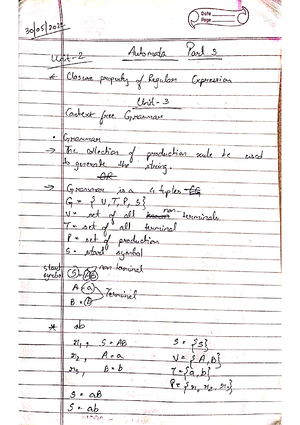 Date
Page
30/05/2022
Automata Part 3
Unit-2
* Closure property of Regular Expression
Unit-3
Context free Grammar
• Grammar
→ The collection of production rule be used
to generate the string.
OR
→ Grammar is a 4 tuples
G = { V, T, P, S}
V = set of all non-terminals
T = set of all terminal
P = set of production
S = start symbol
start symbol
S → AB non terminal
A = a
B = b
Terminal
* ab
r1, S = AB S = {S}
r2, A = a V = {A, B}
r3, B = b T = {a, b}
P = {r1, r2, r3}
S = aB
S = ab